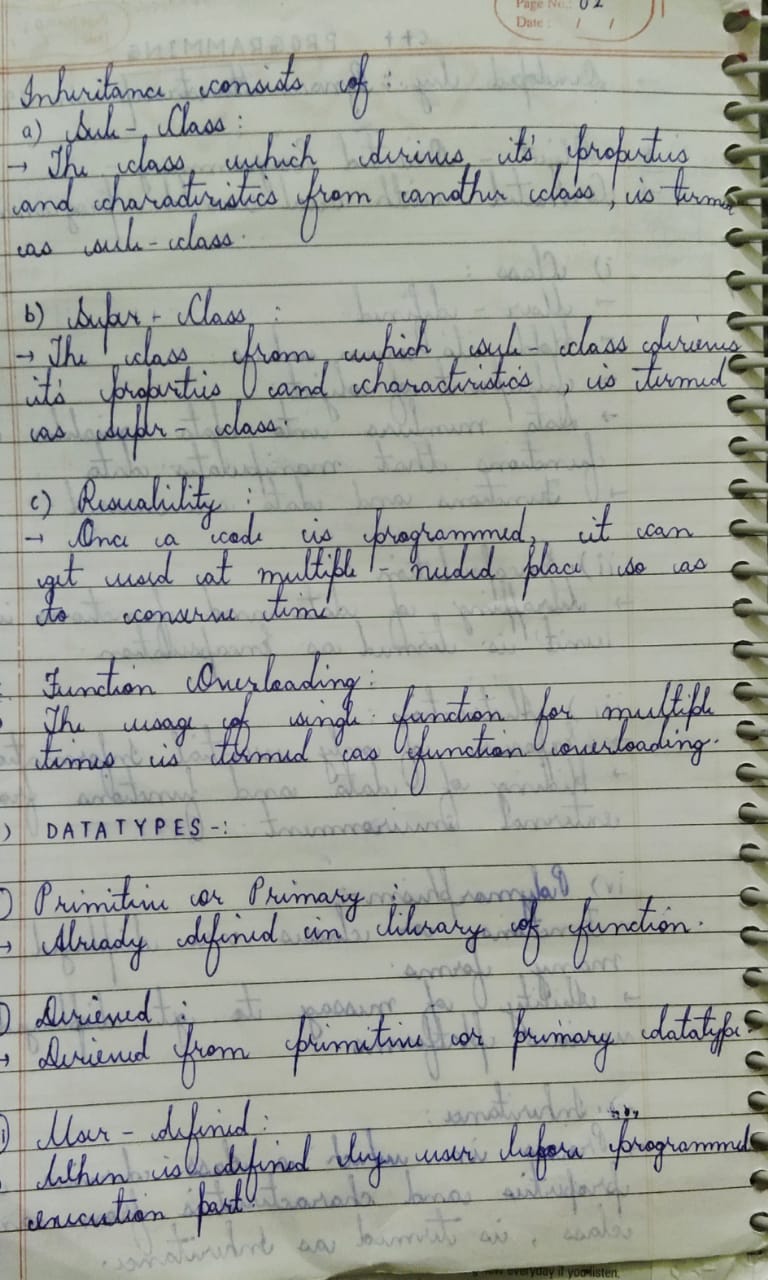 Page No.: 02
Date: / /
Inheritance consists of :
a) Sub-Class :
→ The class which derives it's properties
and characteristics from another class, is termed
as sub-class.
b) Super-Class :
→ The class from which sub-class derieves
it's properties and characteristics, is termed
as super-class.
c) Reusability :
→ Once a code is programmed, it can
get used at multiple-needed place so as
to conserve time
Function Overloading :
The usage of single function for multiple
times is termed as function overloading.
) DATATYPES -:
) Primitive or Primary :
→ Already defined in library of function.
) Derieved :
→ Derieved from primitive or primary datatype.
) User-defined :
When is defined by user before programmed
execution part.
everyday if you listen.